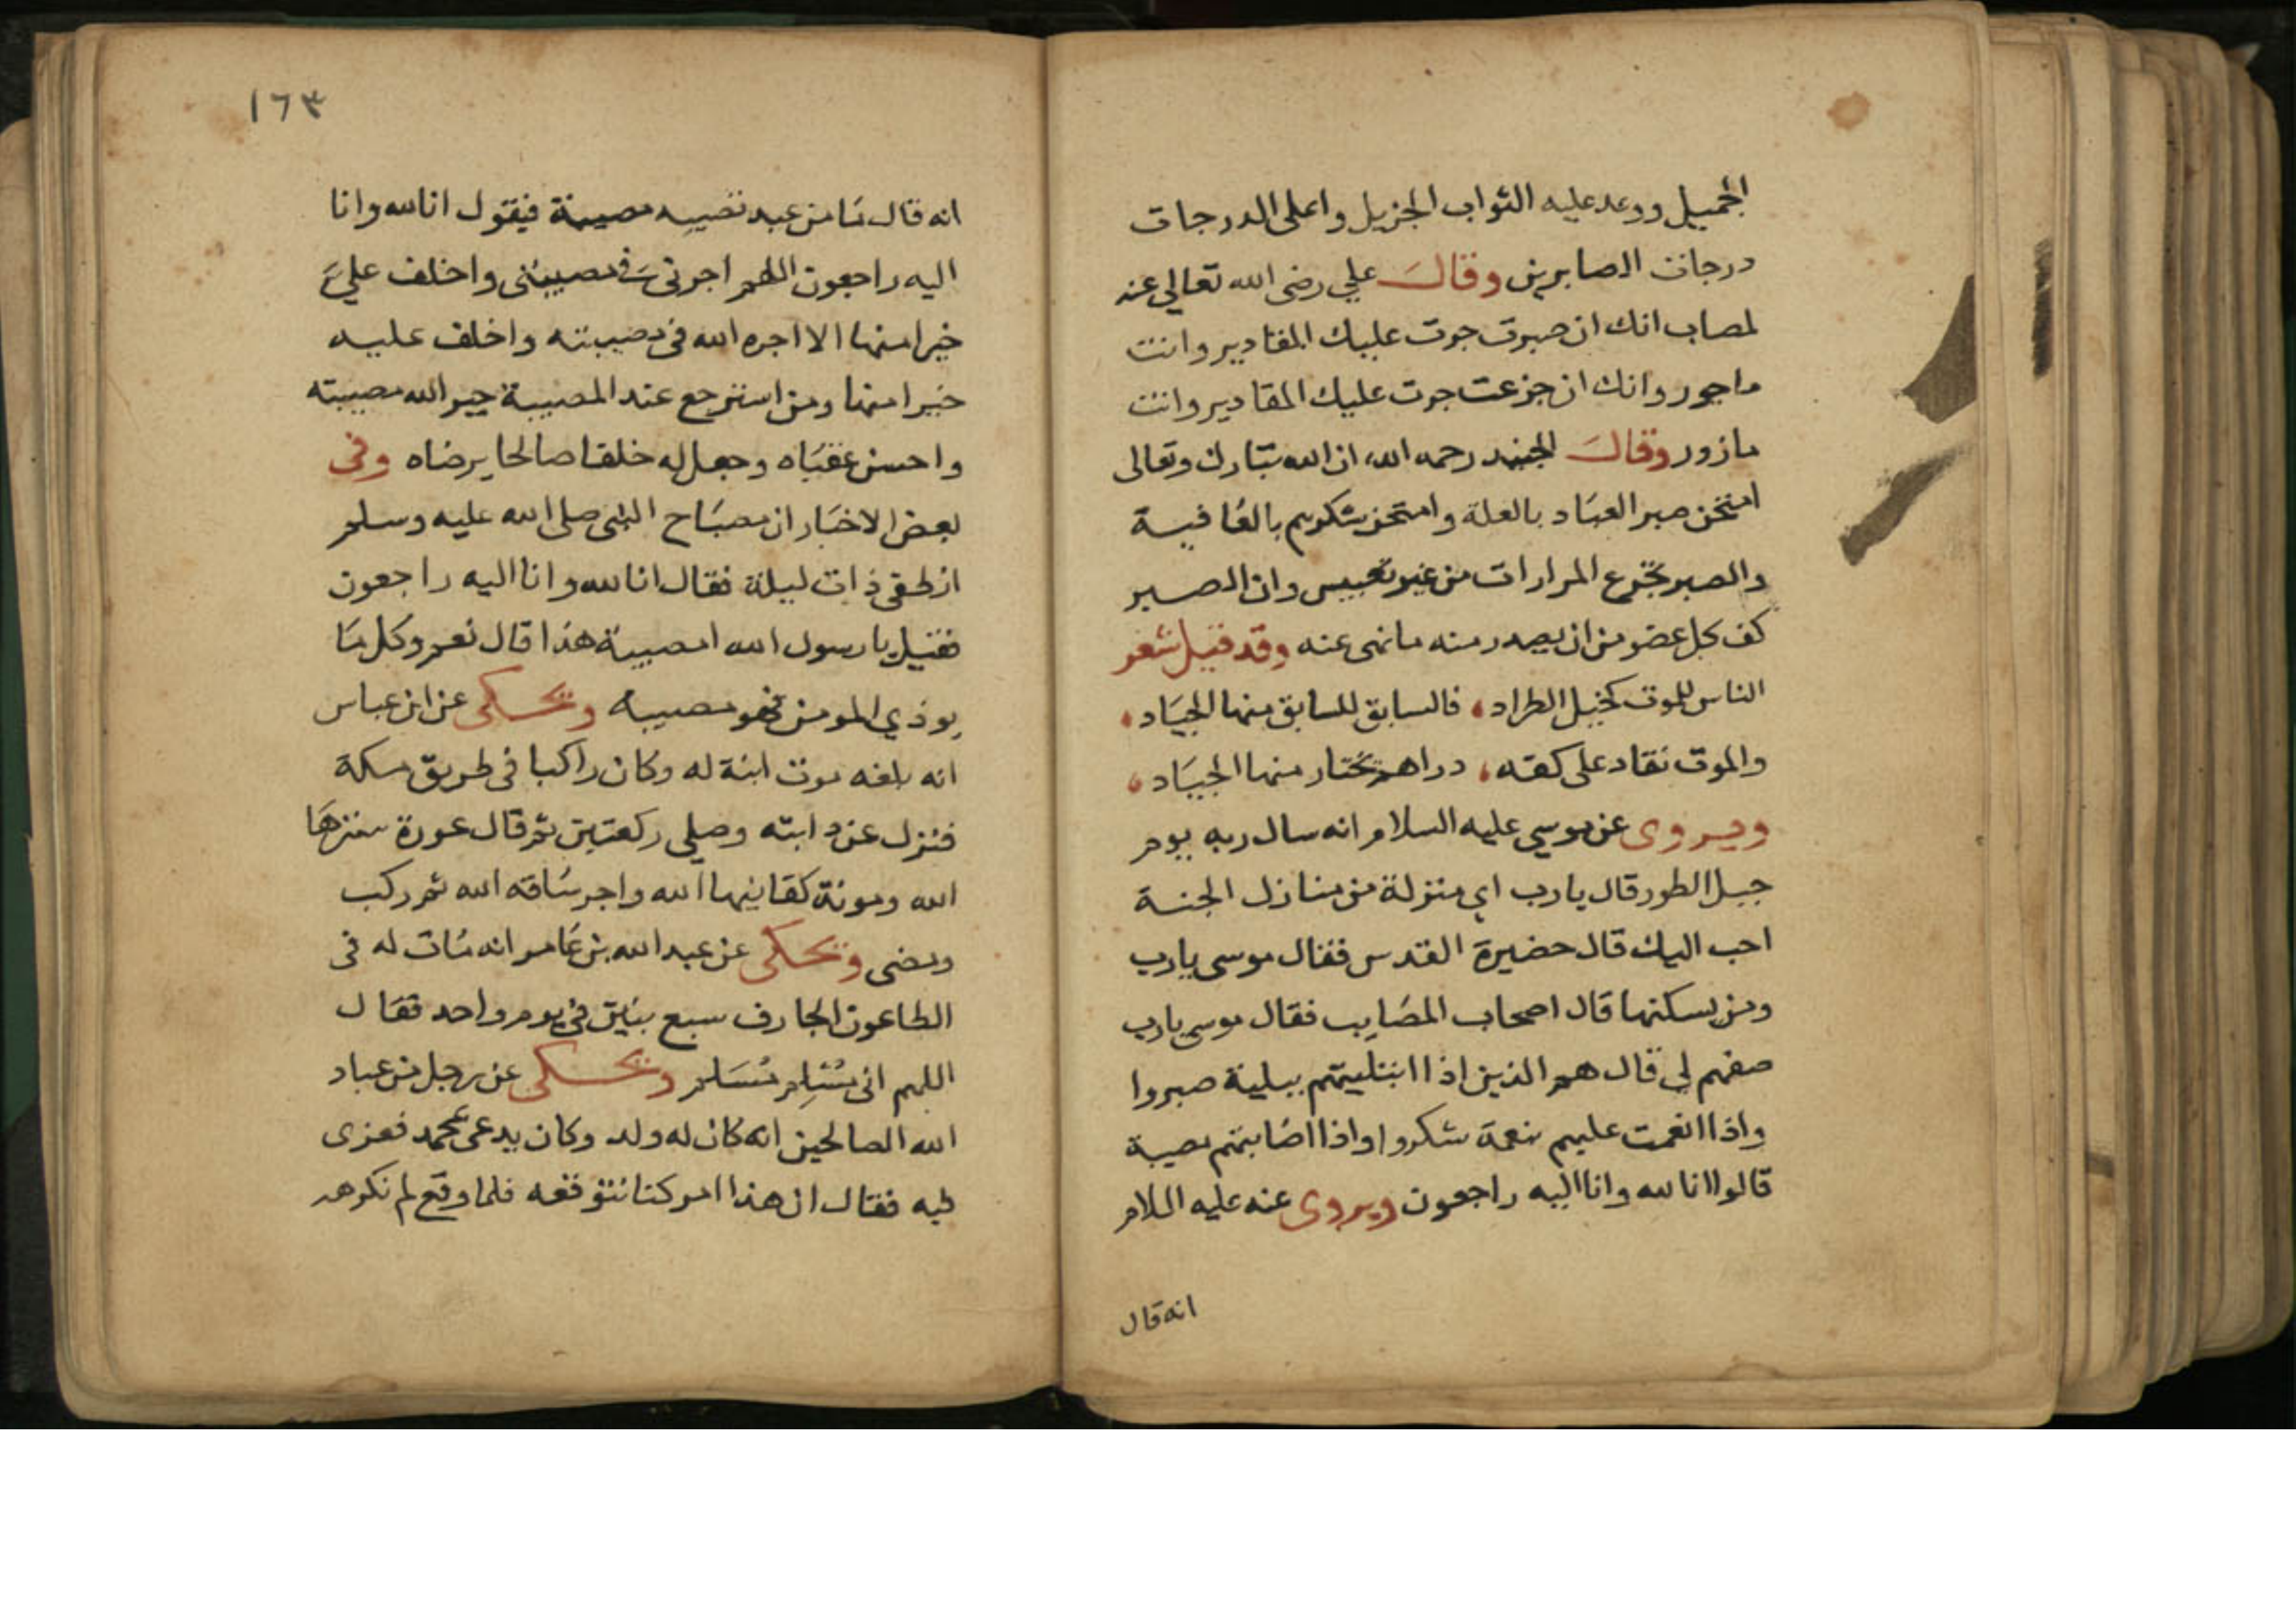 الجميل ووعد عليه الثواب الجزيل واعلى الدرجات
درجات الصابرين وقال علي رضى الله تعالى عنه
لمصاب انك ان صبرت جرت عليك المقادير وانت
ماجور وانك ان جزعت جرت عليك المقادير وانت
مازور وقال الجنيد رحمه الله ان الله تبارك وتعالى
امتحن صبر العباد بالعلة وامتحن شكرهم بالعافية
والصبر تجرع المرارات من غير تعبيس وان الصبر
كف كل عضو من ان يصدر منه ما نهى عنه وقد قيل شعر
الناس للموت كخيل الطراد، فالسابق للسابق منها الجياد،
والموت نقاد على كفه، دراهم تختار منها الجياد،
ويروى عن موسى عليه السلام انه سال ربه يوم
جبل الطور قال يارب اي منزلة من منازل الجنة
احب اليك قال حضيرة القدس فقال موسى يارب
ومن يسكنها قال اصحاب المصايب فقال موسى يارب
صفهم لي قال هم الذين اذا ابتليتهم ببلية صبروا
واذا انعمت عليهم بنعمة شكروا واذا اصابتهم مصيبة
قالوا انا لله وانا اليه راجعون ويروى عنه عليه السلام
انه قال
١٦٣
انه قال ما من عبد تصيبه مصيبة فيقول انا لله وانا
اليه راجعون اللهم اجرنى فى مصيبتى واخلف علي
خيرا منها الا اجره الله فى مصيبته واخلف عليه
خيرا منها ومن استرجع عند المصيبة جبر الله مصيبته
واحسن عقباه وجعل له خلقا صالحا يرضاه وفى
بعض الاخبار ان مصباح النبى صلى الله عليه وسلم
انطفى ذات ليلة فقال انا لله وانا اليه راجعون
فقيل يا رسول الله امصيبة هذا قال نعم وكل ما
يوذي المومن فهو مصيبه ويحكى عن ابن عباس
انه بلغه موت ابنة له وكان راكبا فى طريق مكة
فنزل عن دابته وصلى ركعتين ثم قال عورة سترها
الله ومونة كفانيها الله واجر ساقه الله ثم ركب
ومضى ويحكى عن عبد الله بن عامر انه مات له فى
الطاعون الجارف سبع بنين فى يوم واحد فقال
اللهم انى مسلم مسلم ويحكى عن رجل من عباد
الله الصالحين انه كان له ولد وكان يدعى محمد فعزى
فيه فقال ان هذا امر كنا نتوقعه فلما وقع لم نكرهه